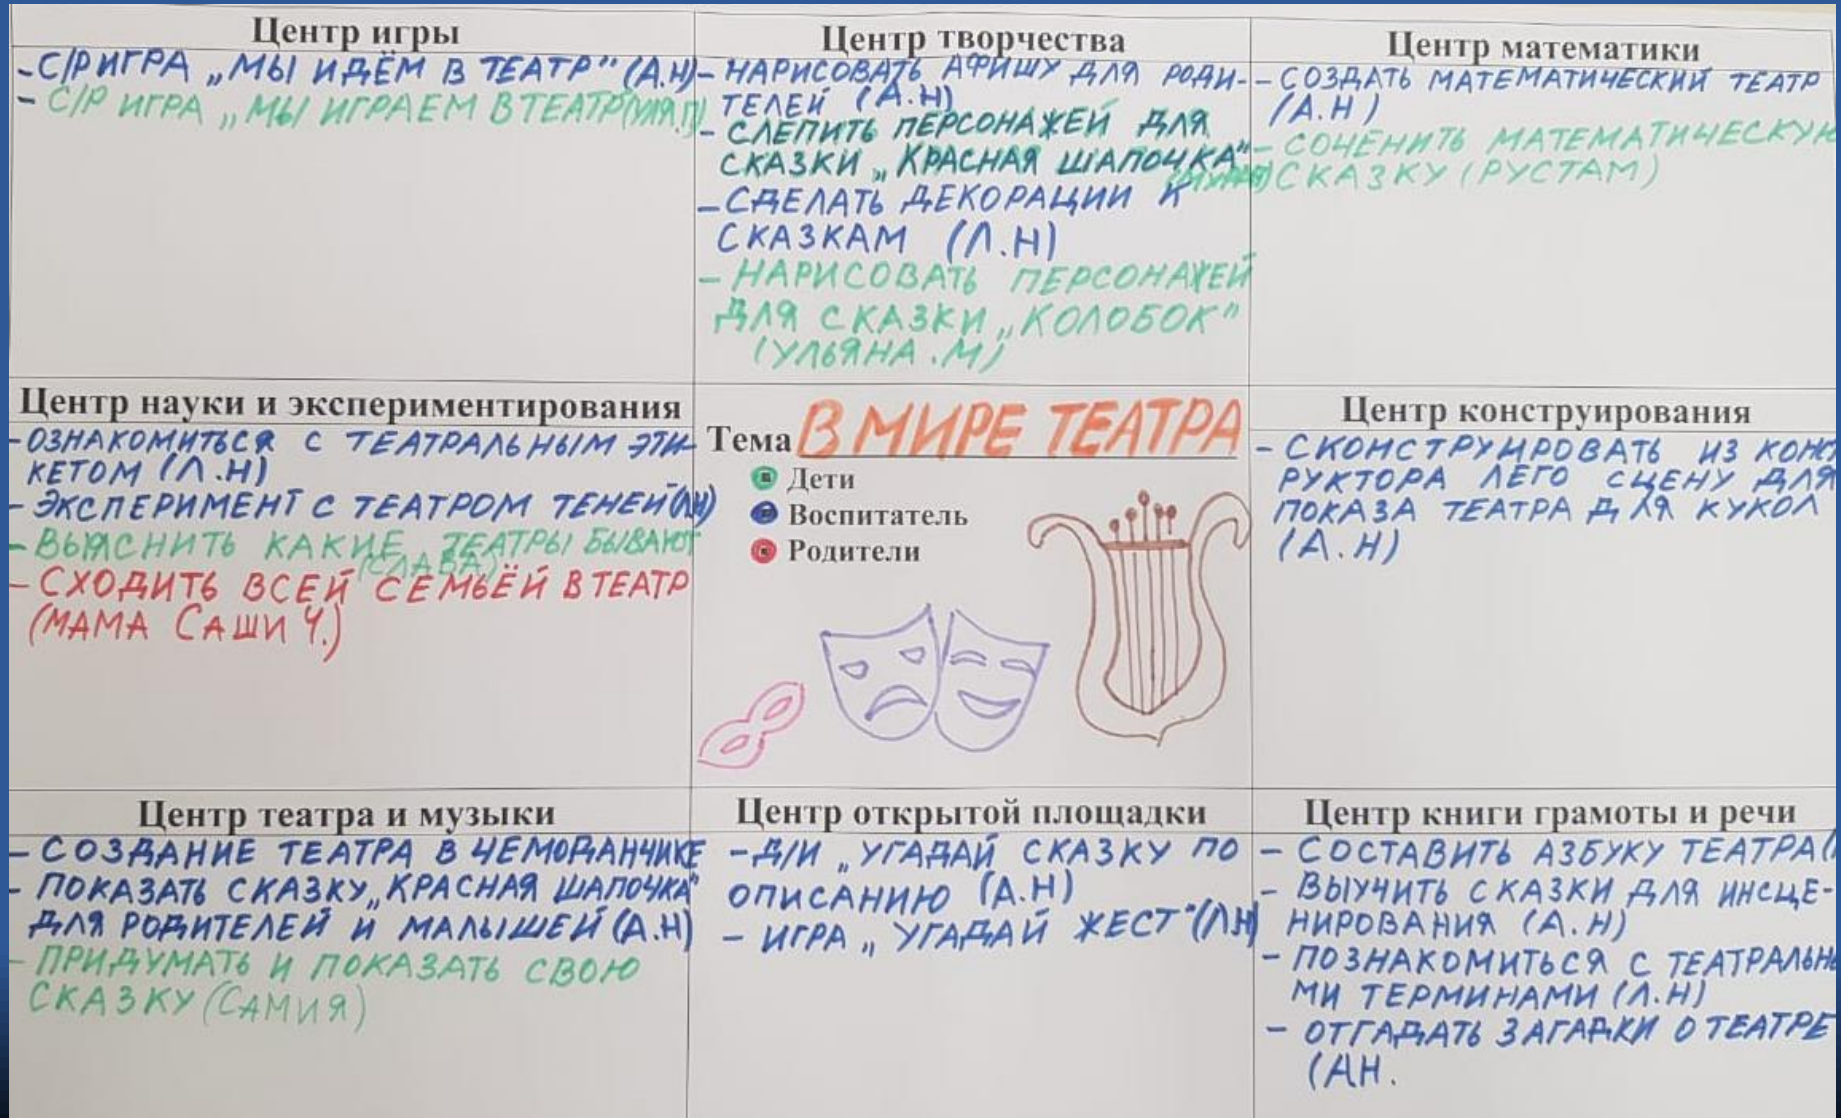 Центр игры
- С/Р ИГРА „МЫ ИДЁМ В ТЕАТР" (А.Н)
- С/Р ИГРА „МЫ ИГРАЕМ В ТЕАТР
Центр творчества
- НАРИСОВАТЬ АФИШУ ДЛЯ РОДИ-
ТЕЛЕЙ (А.Н)
- СЛЕПИТЬ ПЕРСОНАЖЕЙ ДЛЯ
СКАЗКИ „КРАСНАЯ ШАПОЧКА"
- СДЕЛАТЬ ДЕКОРАЦИИ К
СКАЗКАМ (Л.Н)
- НАРИСОВАТЬ ПЕРСОНАЖЕЙ
ДЛЯ СКАЗКИ „КОЛОБОК"
(УЛЬЯНА.М)
Центр математики
- СОЗДАТЬ МАТЕМАТИЧЕСКИЙ ТЕАТР
(А.Н)
- СОЧЕНИТЬ МАТЕМАТИЧЕСКУЮ
СКАЗКУ (РУСТАМ)
Центр науки и экспериментирования
- ОЗНАКОМИТЬСЯ С ТЕАТРАЛЬНЫМ ЭТИ-
КЕТОМ (Л.Н)
- ЭКСПЕРИМЕНТ С ТЕАТРОМ ТЕНЕЙ (Л.Н)
- ВЫЯСНИТЬ КАКИЕ ТЕАТРЫ БЫВАЮТ
(СЛАВА)
- СХОДИТЬ ВСЕЙ СЕМЬЁЙ В ТЕАТР
(МАМА САШИ Ч.)
Тема В МИРЕ ТЕАТРА
Дети
Воспитатель
Родители
Центр конструирования
- СКОНСТРУИРОВАТЬ ИЗ КОНСТ
РУКТОРА ЛЕГО СЦЕНУ ДЛЯ
ПОКАЗА ТЕАТРА ДЛЯ КУКОЛ
(А.Н)
Центр театра и музыки
- СОЗДАНИЕ ТЕАТРА В ЧЕМОДАНЧИКЕ
- ПОКАЗАТЬ СКАЗКУ „КРАСНАЯ ШАПОЧКА"
ДЛЯ РОДИТЕЛЕЙ И МАЛЫШЕЙ (А.Н)
- ПРИДУМАТЬ И ПОКАЗАТЬ СВОЮ
СКАЗКУ (САМИЯ)
Центр открытой площадки
- Д/И „УГАДАЙ СКАЗКУ ПО
ОПИСАНИЮ (А.Н)
- ИГРА „УГАДАЙ ЖЕСТ" (Л.Н)
Центр книги грамоты и речи
- СОСТАВИТЬ АЗБУКУ ТЕАТРА
- ВЫУЧИТЬ СКАЗКИ ДЛЯ ИНСЦЕ-
НИРОВАНИЯ (А.Н)
- ПОЗНАКОМИТЬСЯ С ТЕАТРАЛЬНЫ
МИ ТЕРМИНАМИ (Л.Н)
- ОТГАДАТЬ ЗАГАДКИ О ТЕАТРЕ
(А.Н.